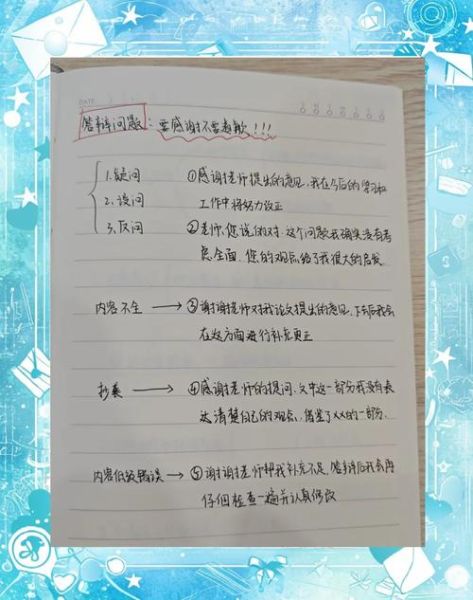 DATE
答辩问题：要感谢不要道歉！！！
1.疑问 ①感谢老师提出的意见，我在今后的学习和
2.设问 工作中将努力改正
3.反问 ②老师，您说的对，这个问题我确实没有考
虑全面，您的观点给了我很大的启发
内容不全 → ③谢谢老师对我论文提出的意见，下去后我会
在这方面进行补充更正
抄袭 → ④感谢老师的提问，文中这一部分我没有表
达清楚自己的观点，借鉴了xx的一部分．
内容低级错误 → ⑤谢谢老师帮我补充不足，答辩后我会再
仔细检查一遍并认真修改